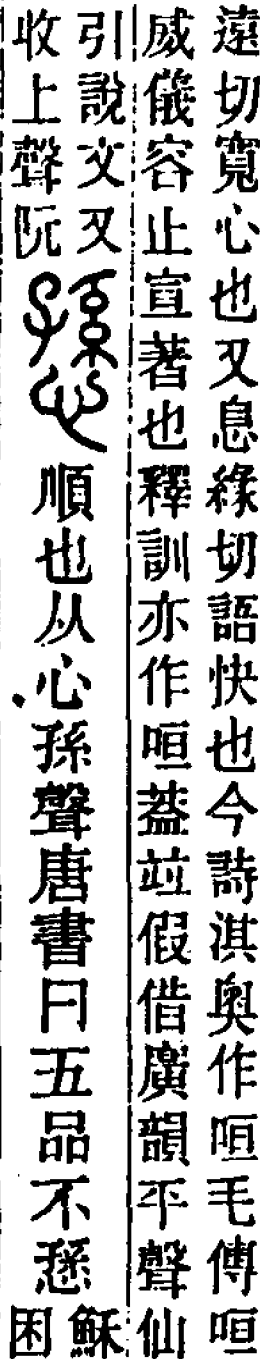 遠切寬心也又息緣切語快也今詩淇奧作咺毛傳咺
威儀容止宣著也釋訓亦作咺葢竝假借廣韻平聲仙
引說文又
收上聲阮
愻順也从心孫聲唐書曰五品不愻
穌
困